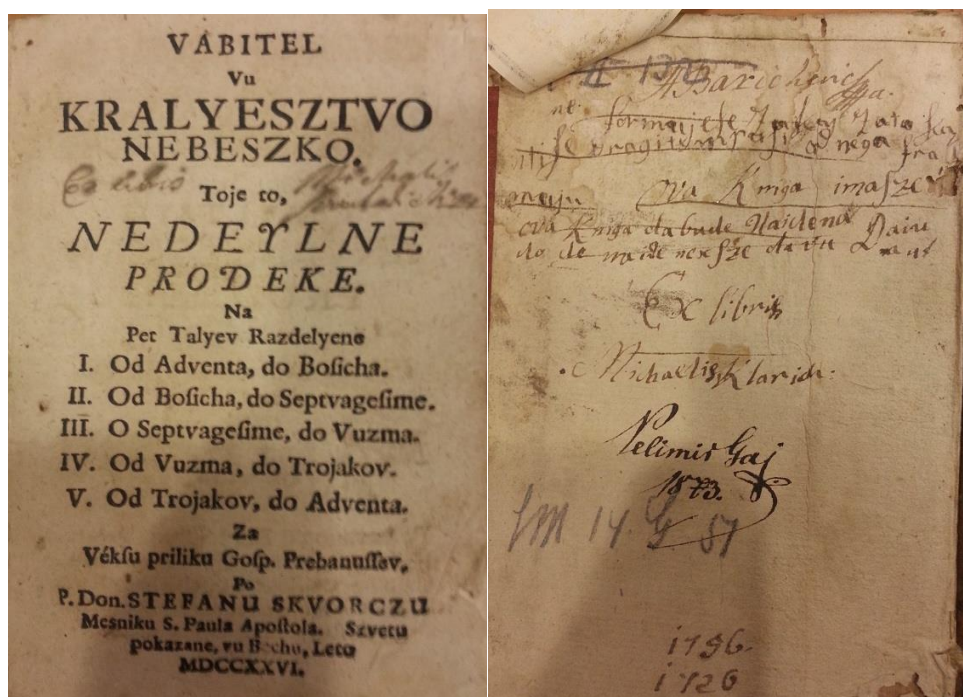 VABITEL
Vu
KRALYESZTVO
NEBESZKO.
Ex libris
Toje to,
NEDEYLNE
PRODEKE.
Na
Pet Talyev Razdelyene
I. Od Adventa, do Boſicha.
II. Od Boſicha, do Septvageſime.
III. O Septvageſime, do Vuzma.
IV. Od Vuzma, do Trojakov.
V. Od Trojakov, do Adventa.
Za
Vékſu priliku Goſp. Prebanuſſev,
Po
P. Don. STEFANU SKVORCZU
Meſniku S. Paula Apoſtola. Szvetu
pokazane, vu Bechu, Leto
MDCCXXVI.
ova Kniga imasze
ova Kniga da bude Najdena
Ex libris
Michaelis Klarich.
Velimir Gaj
1873.
14. G 57
1796.
1726